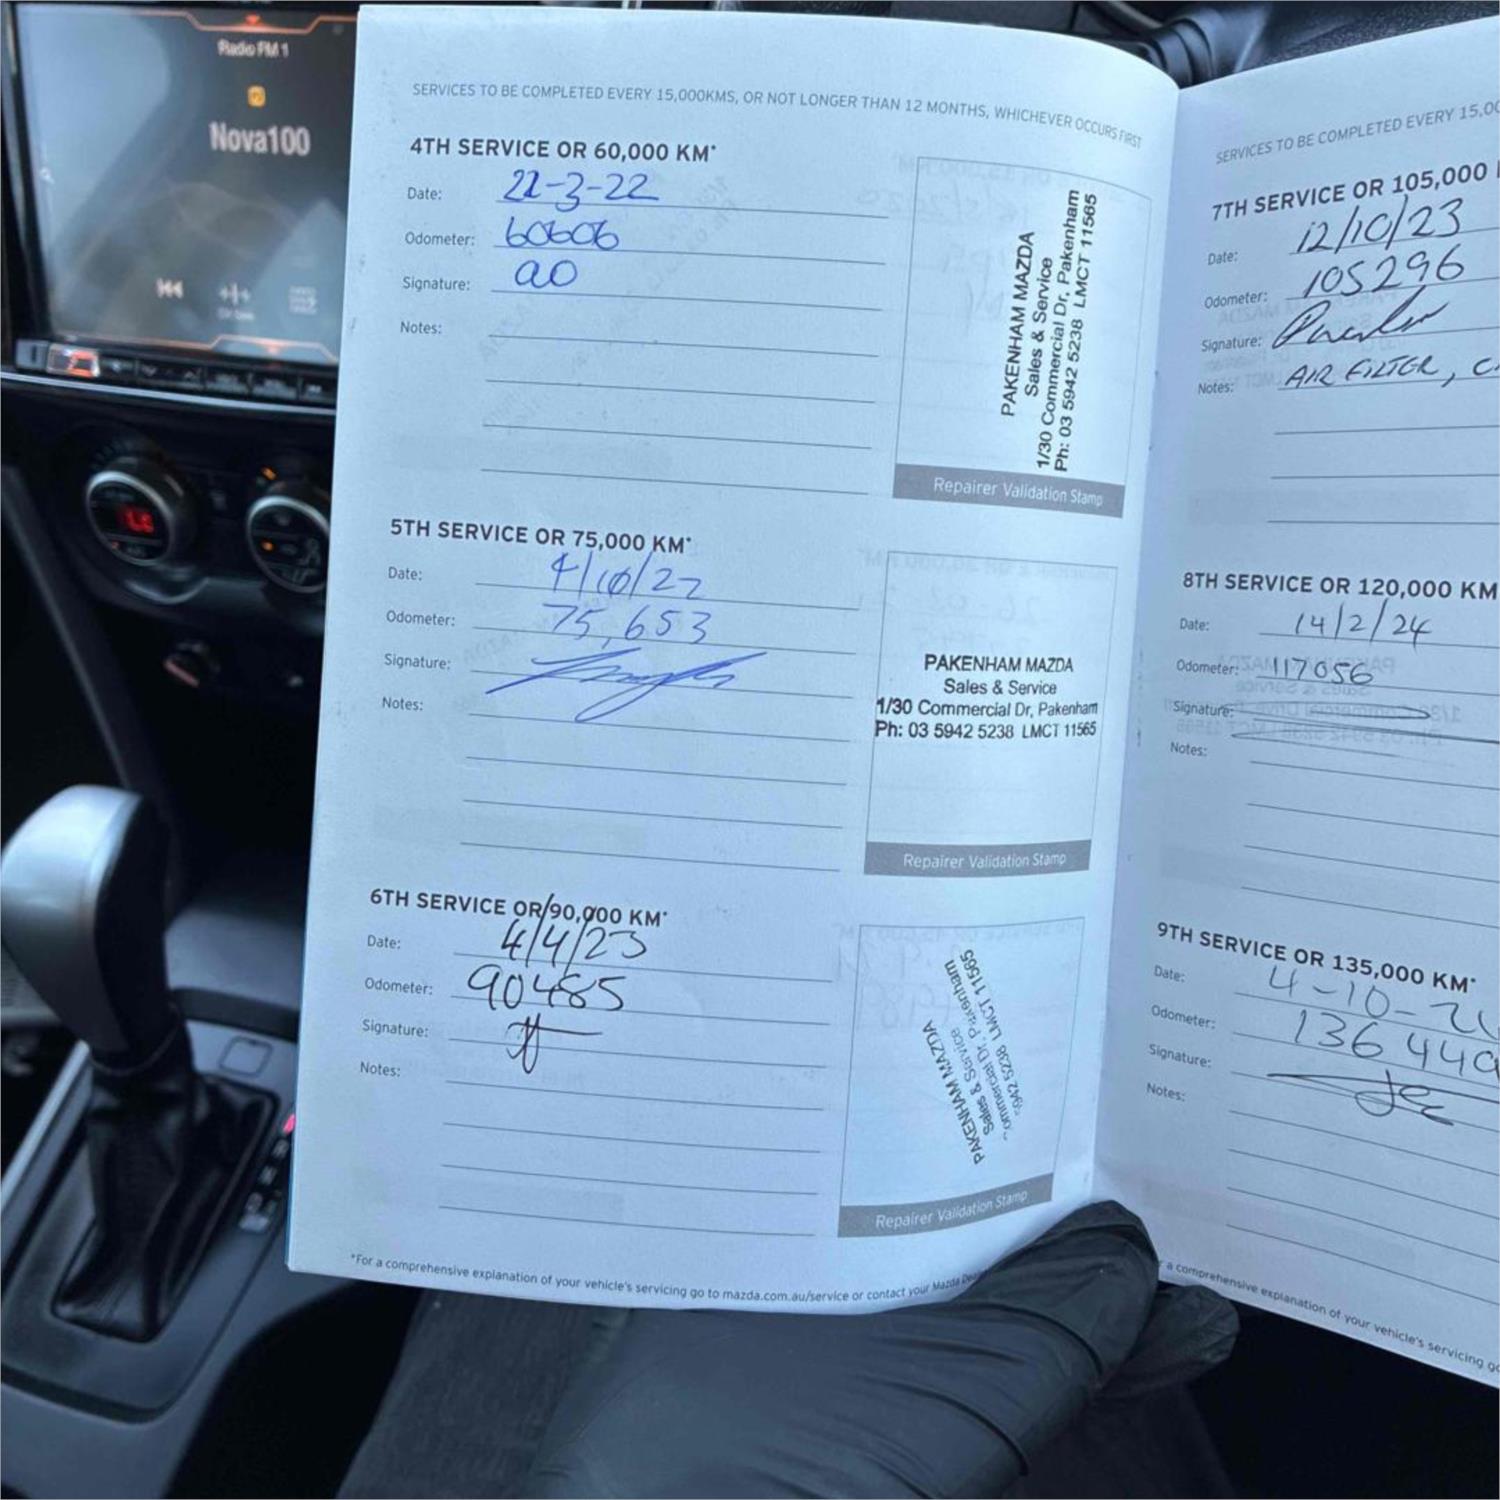 Radio FM 1
Nova100
SERVICES TO BE COMPLETED EVERY 15,000KMS, OR NOT LONGER THAN 12 MONTHS, WHICHEVER OCCURS FIRST
4TH SERVICE OR 60,000 KM*
Date: 22-3-22
Odometer: 60606
Signature: ao
Notes:
PAKENHAM MAZDA
Sales & Service
1/30 Commercial Dr, Pakenham
Ph: 03 5942 5238 LMCT 11565
Repairer Validation Stamp
5TH SERVICE OR 75,000 KM*
Date: 4/10/22
Odometer: 75,653
Signature:
Notes:
PAKENHAM MAZDA
Sales & Service
1/30 Commercial Dr, Pakenham
Ph: 03 5942 5238 LMCT 11565
Repairer Validation Stamp
6TH SERVICE OR 90,000 KM*
Date: 4/4/23
Odometer: 90485
Signature:
Notes:
PAKENHAM MAZDA
Sales & Service
ommercial Dr, Pakenham
942 5238 LMCT 11565
Repairer Validation Stamp
*For a comprehensive explanation of your vehicle's servicing go to mazda.com.au/service or contact your Mazda
SERVICES TO BE COMPLETED EVERY 15,00
7TH SERVICE OR 105,000
Date: 12/10/23
Odometer: 105296
Signature:
Notes: AIR FILTER,
8TH SERVICE OR 120,000 KM
Date: 14/2/24
Odometer: 117056
Signature:
Notes:
9TH SERVICE OR 135,000 KM*
Date: 4-10-2
Odometer: 13644
Signature:
Notes:
a comprehensive explanation of your vehicle's servicing go